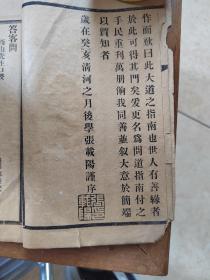 作而歎曰此大道之指南也世人有善緣者
於此可得其門矣爰更名爲問道指南付之
手民重刊萬册俯我同善並叙大意於簡端
以質知者
歲在癸亥清河之月後學張載陽謹序
答客問